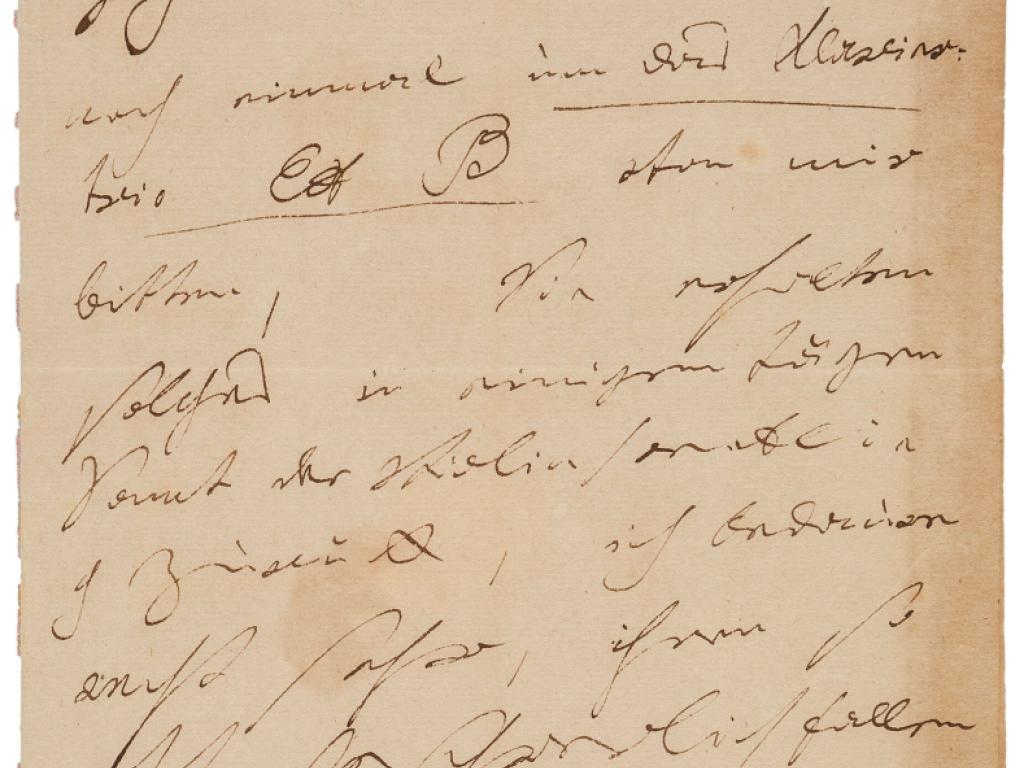 noch einmal um das Klavier:
trio Ex B von mir
bitten, Sie erhalten
solches in einigen Tägen
Samt der Violin sonate in
g zurück, ich bedaure
recht sehr, ihnen so
fallen